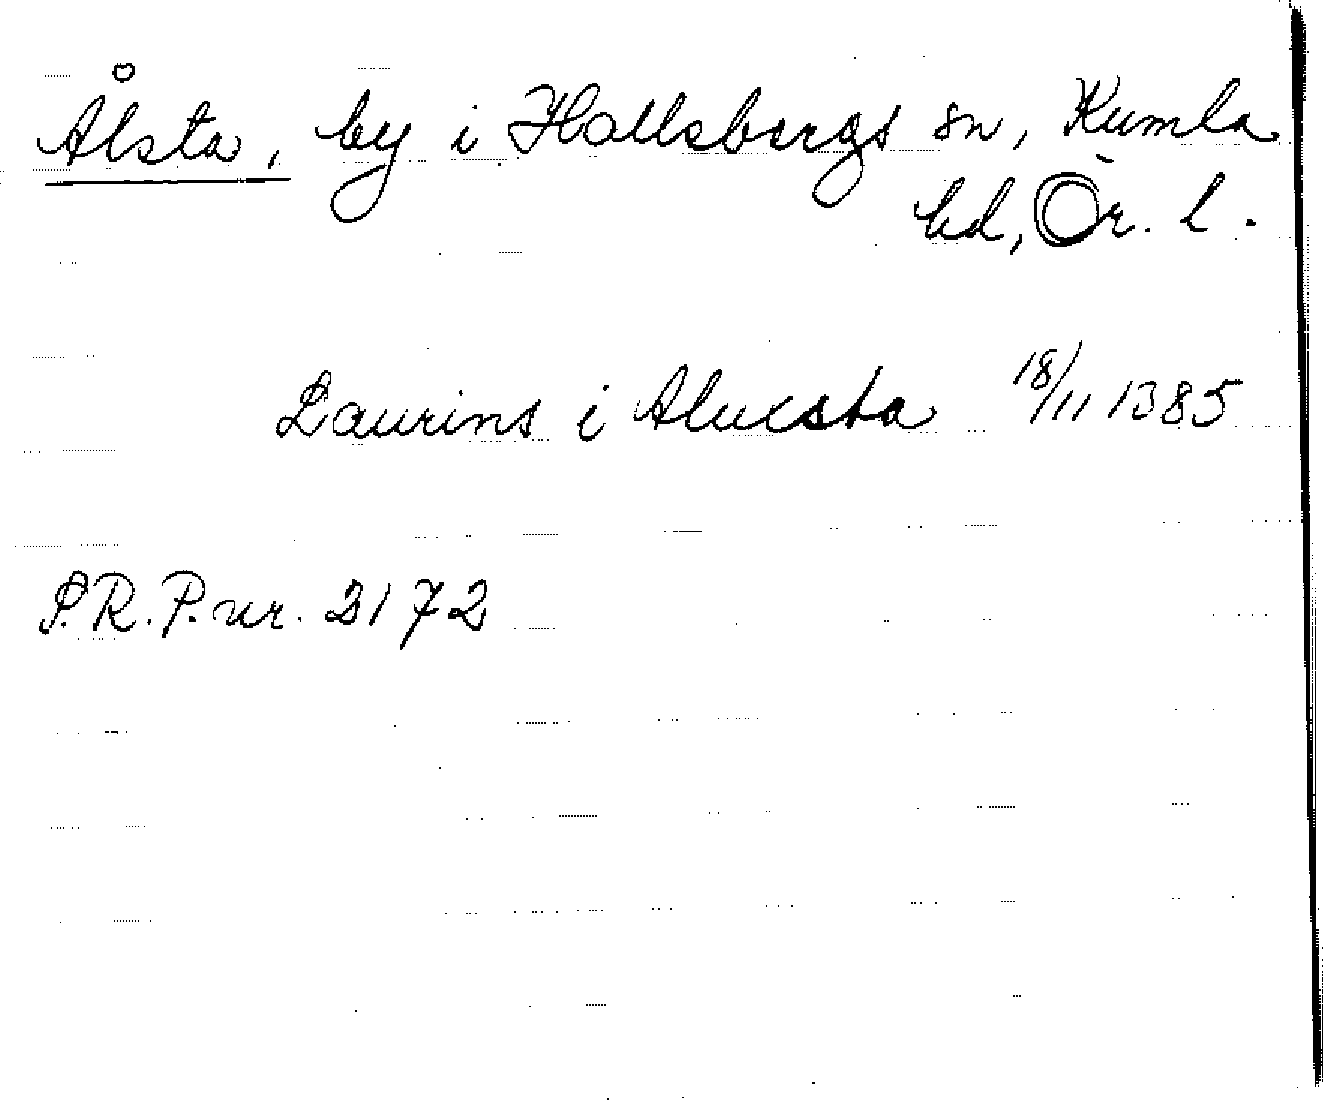 Ålsta, by i Hallsbergs sn, Kumla
hd, Ör. l.
Laurins i Alucsta 18/11 1385
P.R.P. nr. 2172